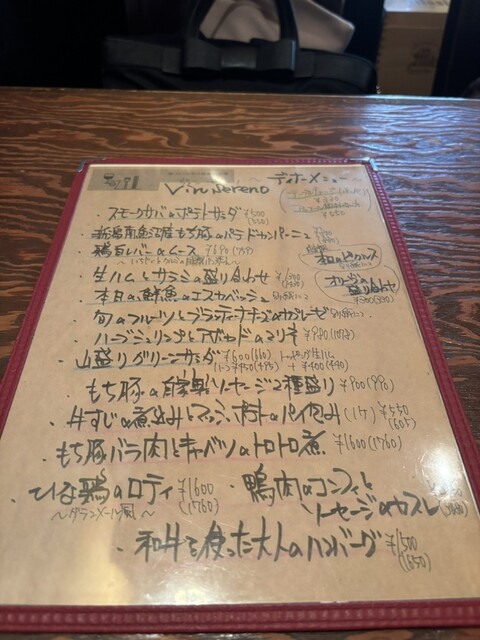 Vin Sereno ディナーメニュー
・スモークサバのポテトサラダ ¥500 (550)
もち豚のパテドカンパーニュ
・鶏白レバーのムース ¥690 (759)
・生ハムとサラミの盛り合わせ
・本日の鮮魚のエスカベッシュ
・旬のフルーツとブラッティーナチーズのカプレーゼ
・ハーブシュリンプとアボカドのマリネ ¥980 (1078)
・山盛りグリーンサラダ ¥600 (660) トッピング生ハム
+ ¥400 (440)
・もち豚の自家製ソーセージ2種盛り ¥900 (990)
・牛すじの煮込みとマッシュポテトのパイ包み (1ケ) ¥550 (605)
・もち豚バラ肉とキャベツのトロトロ煮 ¥1600 (1760)
・ひな鶏のロティ ¥1600 (1760)
～グランメール風～
・鴨肉のコンフィと
ソーセージのカスレ
・和牛を使った大人のハンバーグ ¥1500 (1650)